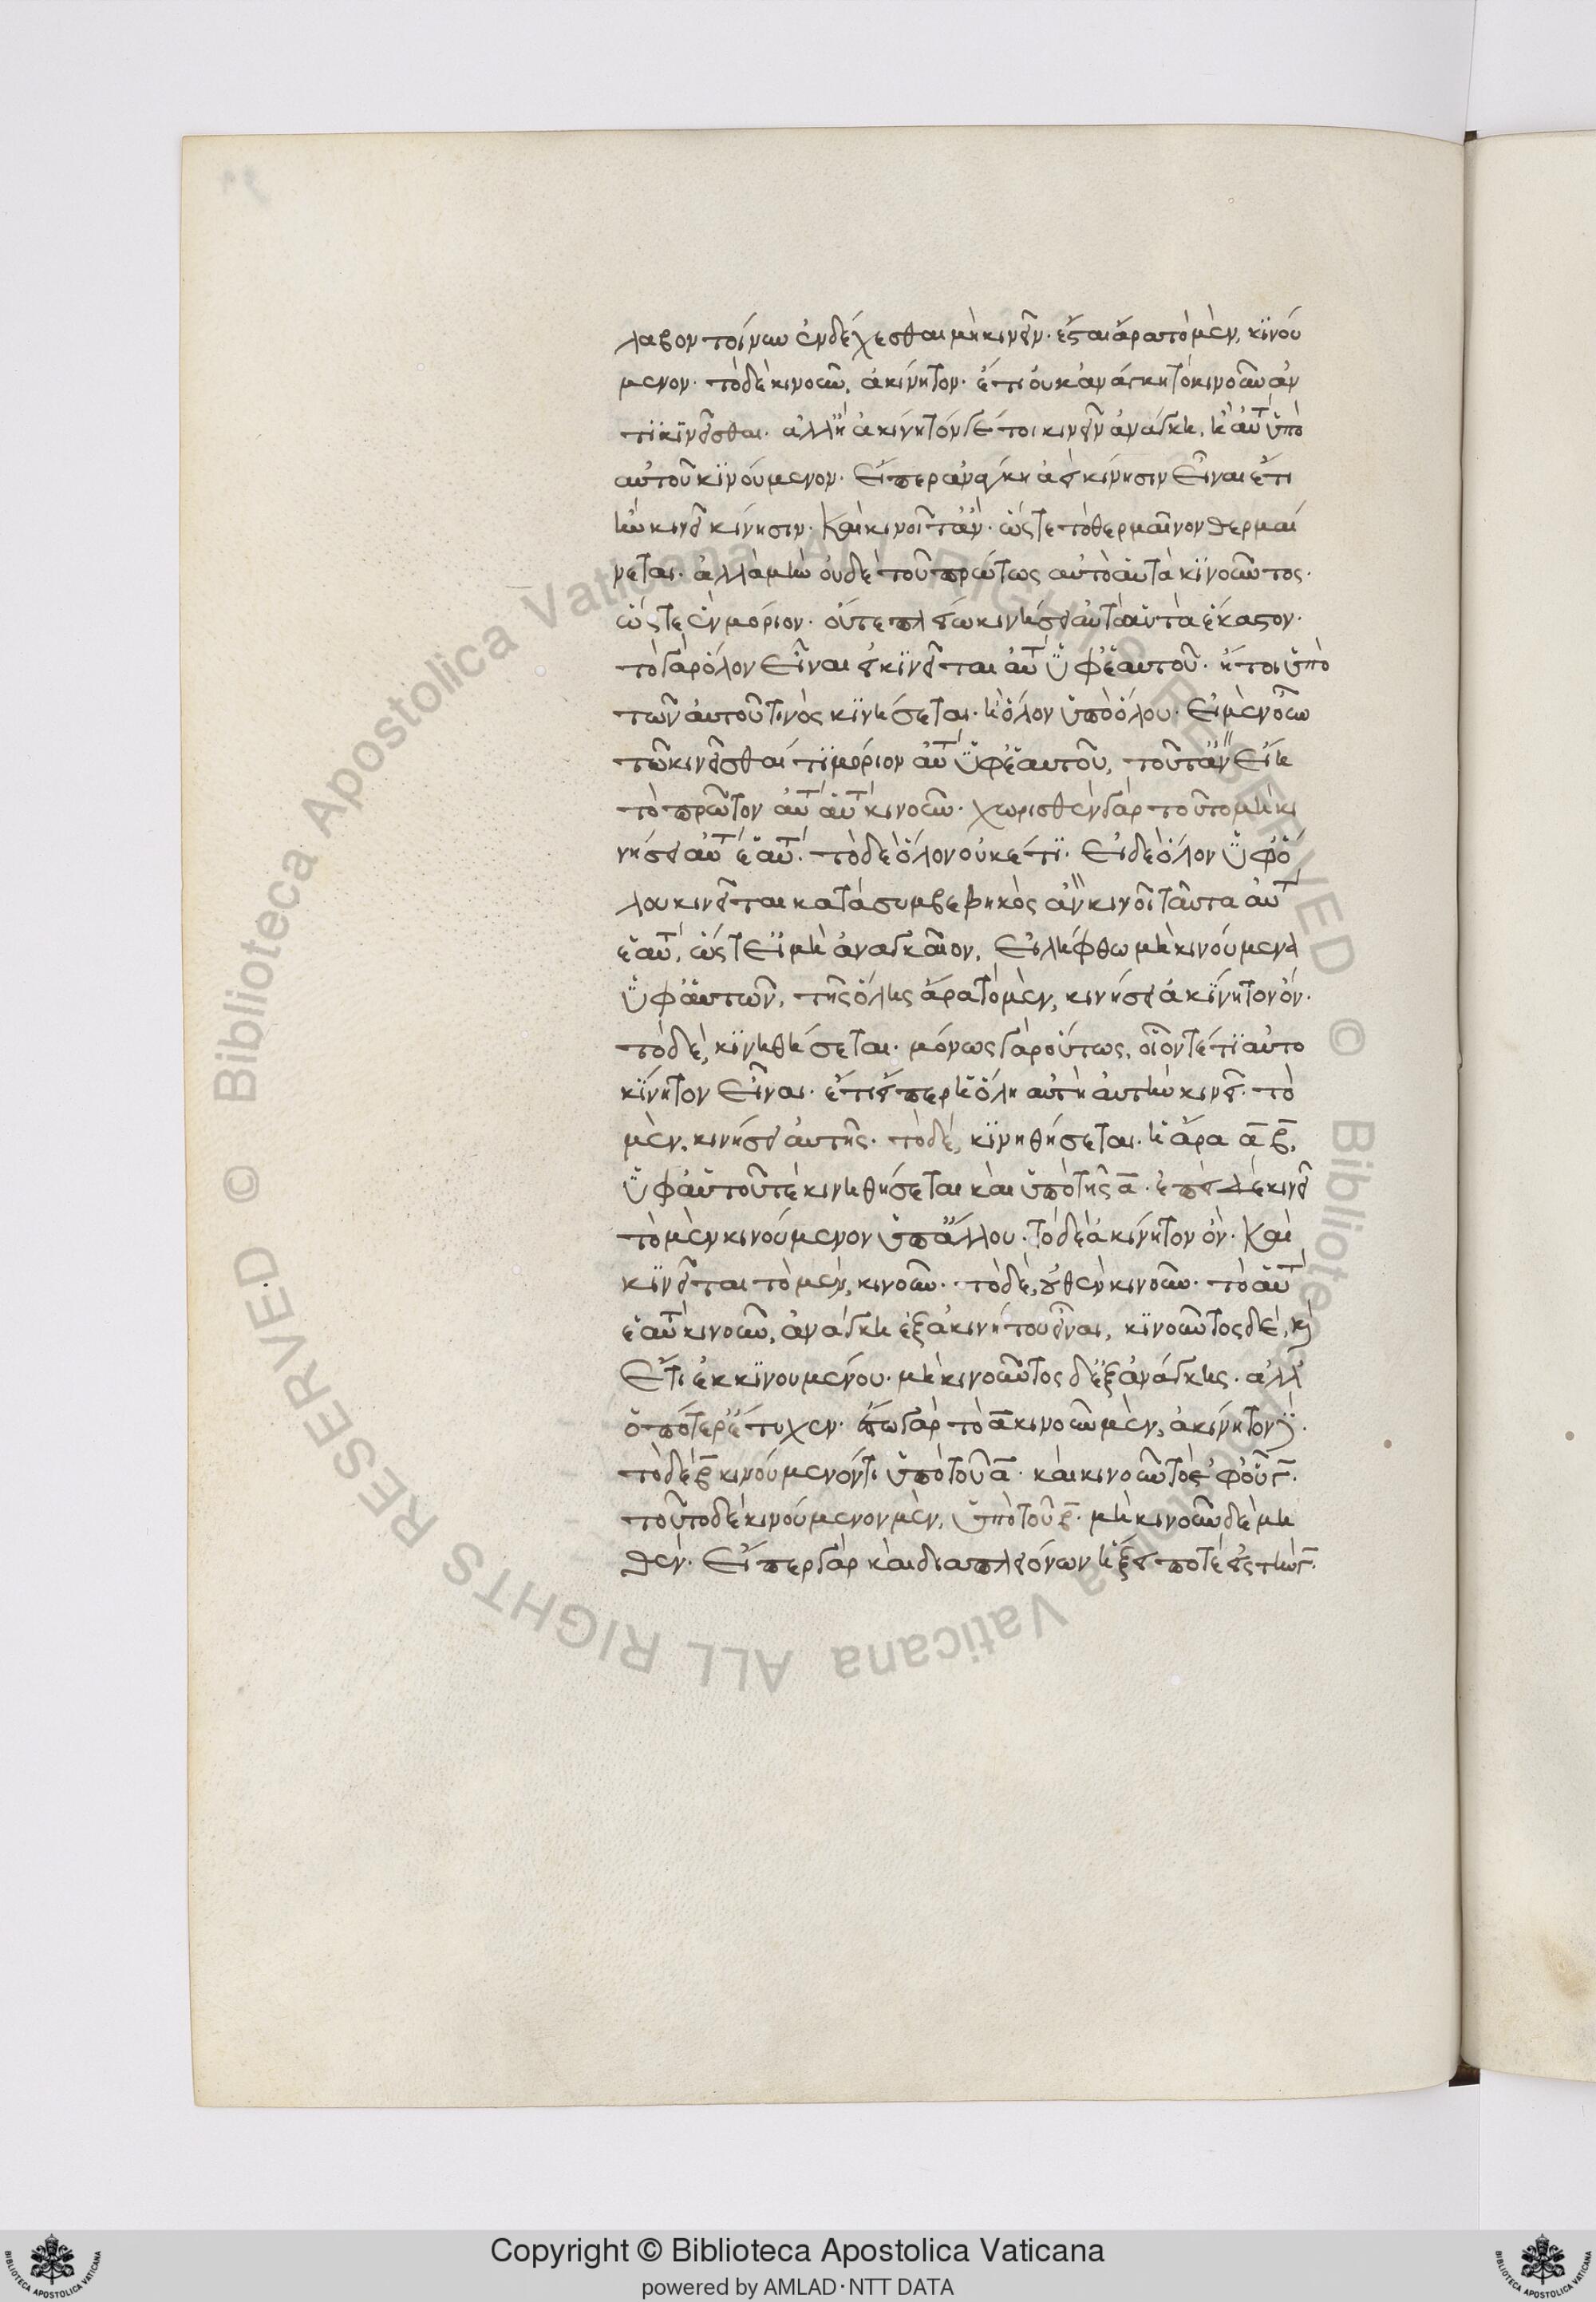 λαβον τοίνυν ἐνδέχεσθαι μὴ κινεῖν. ἔσται ἄρα τὸ μὲν, κινού
μενον. τὸ δὲ κινοῦν, ἀκίνητον. ἔτι οὐκ ἀνάγκη τὸ κινοῦν ἀν
τικινεῖσθαι. ἀλλ' ἢ ἀκίνητόν γέ τοι κινεῖν ἀνάγκη, ἢ αὐτὸ ὑπὸ
αὐτοῦ κινούμενον. εἴπερ ἀνάγκη ἀεὶ κίνησιν εἶναι ἔτι
ἣν κινεῖ κίνησιν. καὶ κινοῖτ' ἄν. ὥστε τὸ θερμαῖνον θερμαί
νεται. ἀλλὰ μὴν οὐδὲ τοῦ πρώτως αὐτὸ αὑτὸ κινοῦντος.
ὥστε ἓν μόριον. οὔτε πλείω κινήσει αὐτὰ αὑτὰ ἕκαστον.
τὸ γὰρ ὅλον εἶναι εἰ κινεῖται αὐτὸ ὑφ' ἑαυτοῦ. ἤτοι ὑπὸ
τῶν αὐτοῦ τινὸς κινήσεται. ἢ ὅλον ὑπὸ ὅλου. εἰ μὲν οὖν
τῶ κινεῖσθαί τι μόριον αὐτὸ ὑφ' ἑαυτοῦ, τοῦτ' ἂν εἴη
τὸ πρῶτον αὐτὸ αὑτὸ κινοῦν. χωρισθὲν γὰρ τοῦτο μὲν κι
νήσει αὐτὸ ἑαυτό. τὸ δὲ ὅλον οὐκέτι. εἰ δὲ ὅλον ὑφ' ὅ
λου κινεῖται κατὰ συμβεβηκὸς ἂν κινοῖ ταῦτα αὐτὸ
ἑαυτό, ὥστ' εἰ μὴ ἀναγκαῖον, εἰλήφθω μὴ κινούμενα
ὑφ' αὑτῶν, τῆς ὅλης ἄρα τὸ μὲν, κινήσει ἀκίνητον ὄν.
τὸ δὲ, κινηθήσεται. μόνως γὰρ οὕτως, οἷόν τέ τι αὐτο
κίνητον εἶναι. ἔτι εἴπερ ἡ ὅλη αὐτὴ αὑτὴν κινεῖ. τὸ
μὲν, κινήσει αὐτῆς. τὸ δὲ, κινηθήσεται. ἡ ἄρα α β,
ὑφ' αὑτοῦ τε κινηθήσεται καὶ ὑπὸ τῆς α. ἐπεὶ δὲ κινεῖ
τὸ μὲν κινούμενον ὑπ' ἄλλου. τὸ δὲ ἀκίνητον ὄν. καὶ
κινεῖται τὸ μὲν, κινοῦν. τὸ δὲ, οὐθὲν κινοῦν. τὸ αὐτὸ
ἑαυτὸ κινοῦν, ἀνάγκη ἐξ ἀκινήτου εἶναι, κινοῦντος δέ, καὶ
ἔτι ἐκ κινουμένου. μὴ κινοῦντος δ' ἐξ ἀνάγκης. ἀλλ'
ὁπότερ' ἔτυχεν. ἔστω γὰρ τὸ α κινοῦν μὲν, ἀκίνητον δέ.
τὸ δὲ β κινούμενόν τε ὑπὸ τοῦ α. καὶ κινοῦν τὸ ἐφ' οὗ γ.
τοῦτο δὲ κινούμενον μὲν, ὑπὸ τοῦ β. μὴ κινοῦν δὲ μη
θέν. εἴπερ γὰρ καὶ διὰ πλειόνων ἥξει ποτὲ εἰς τὴν γ.